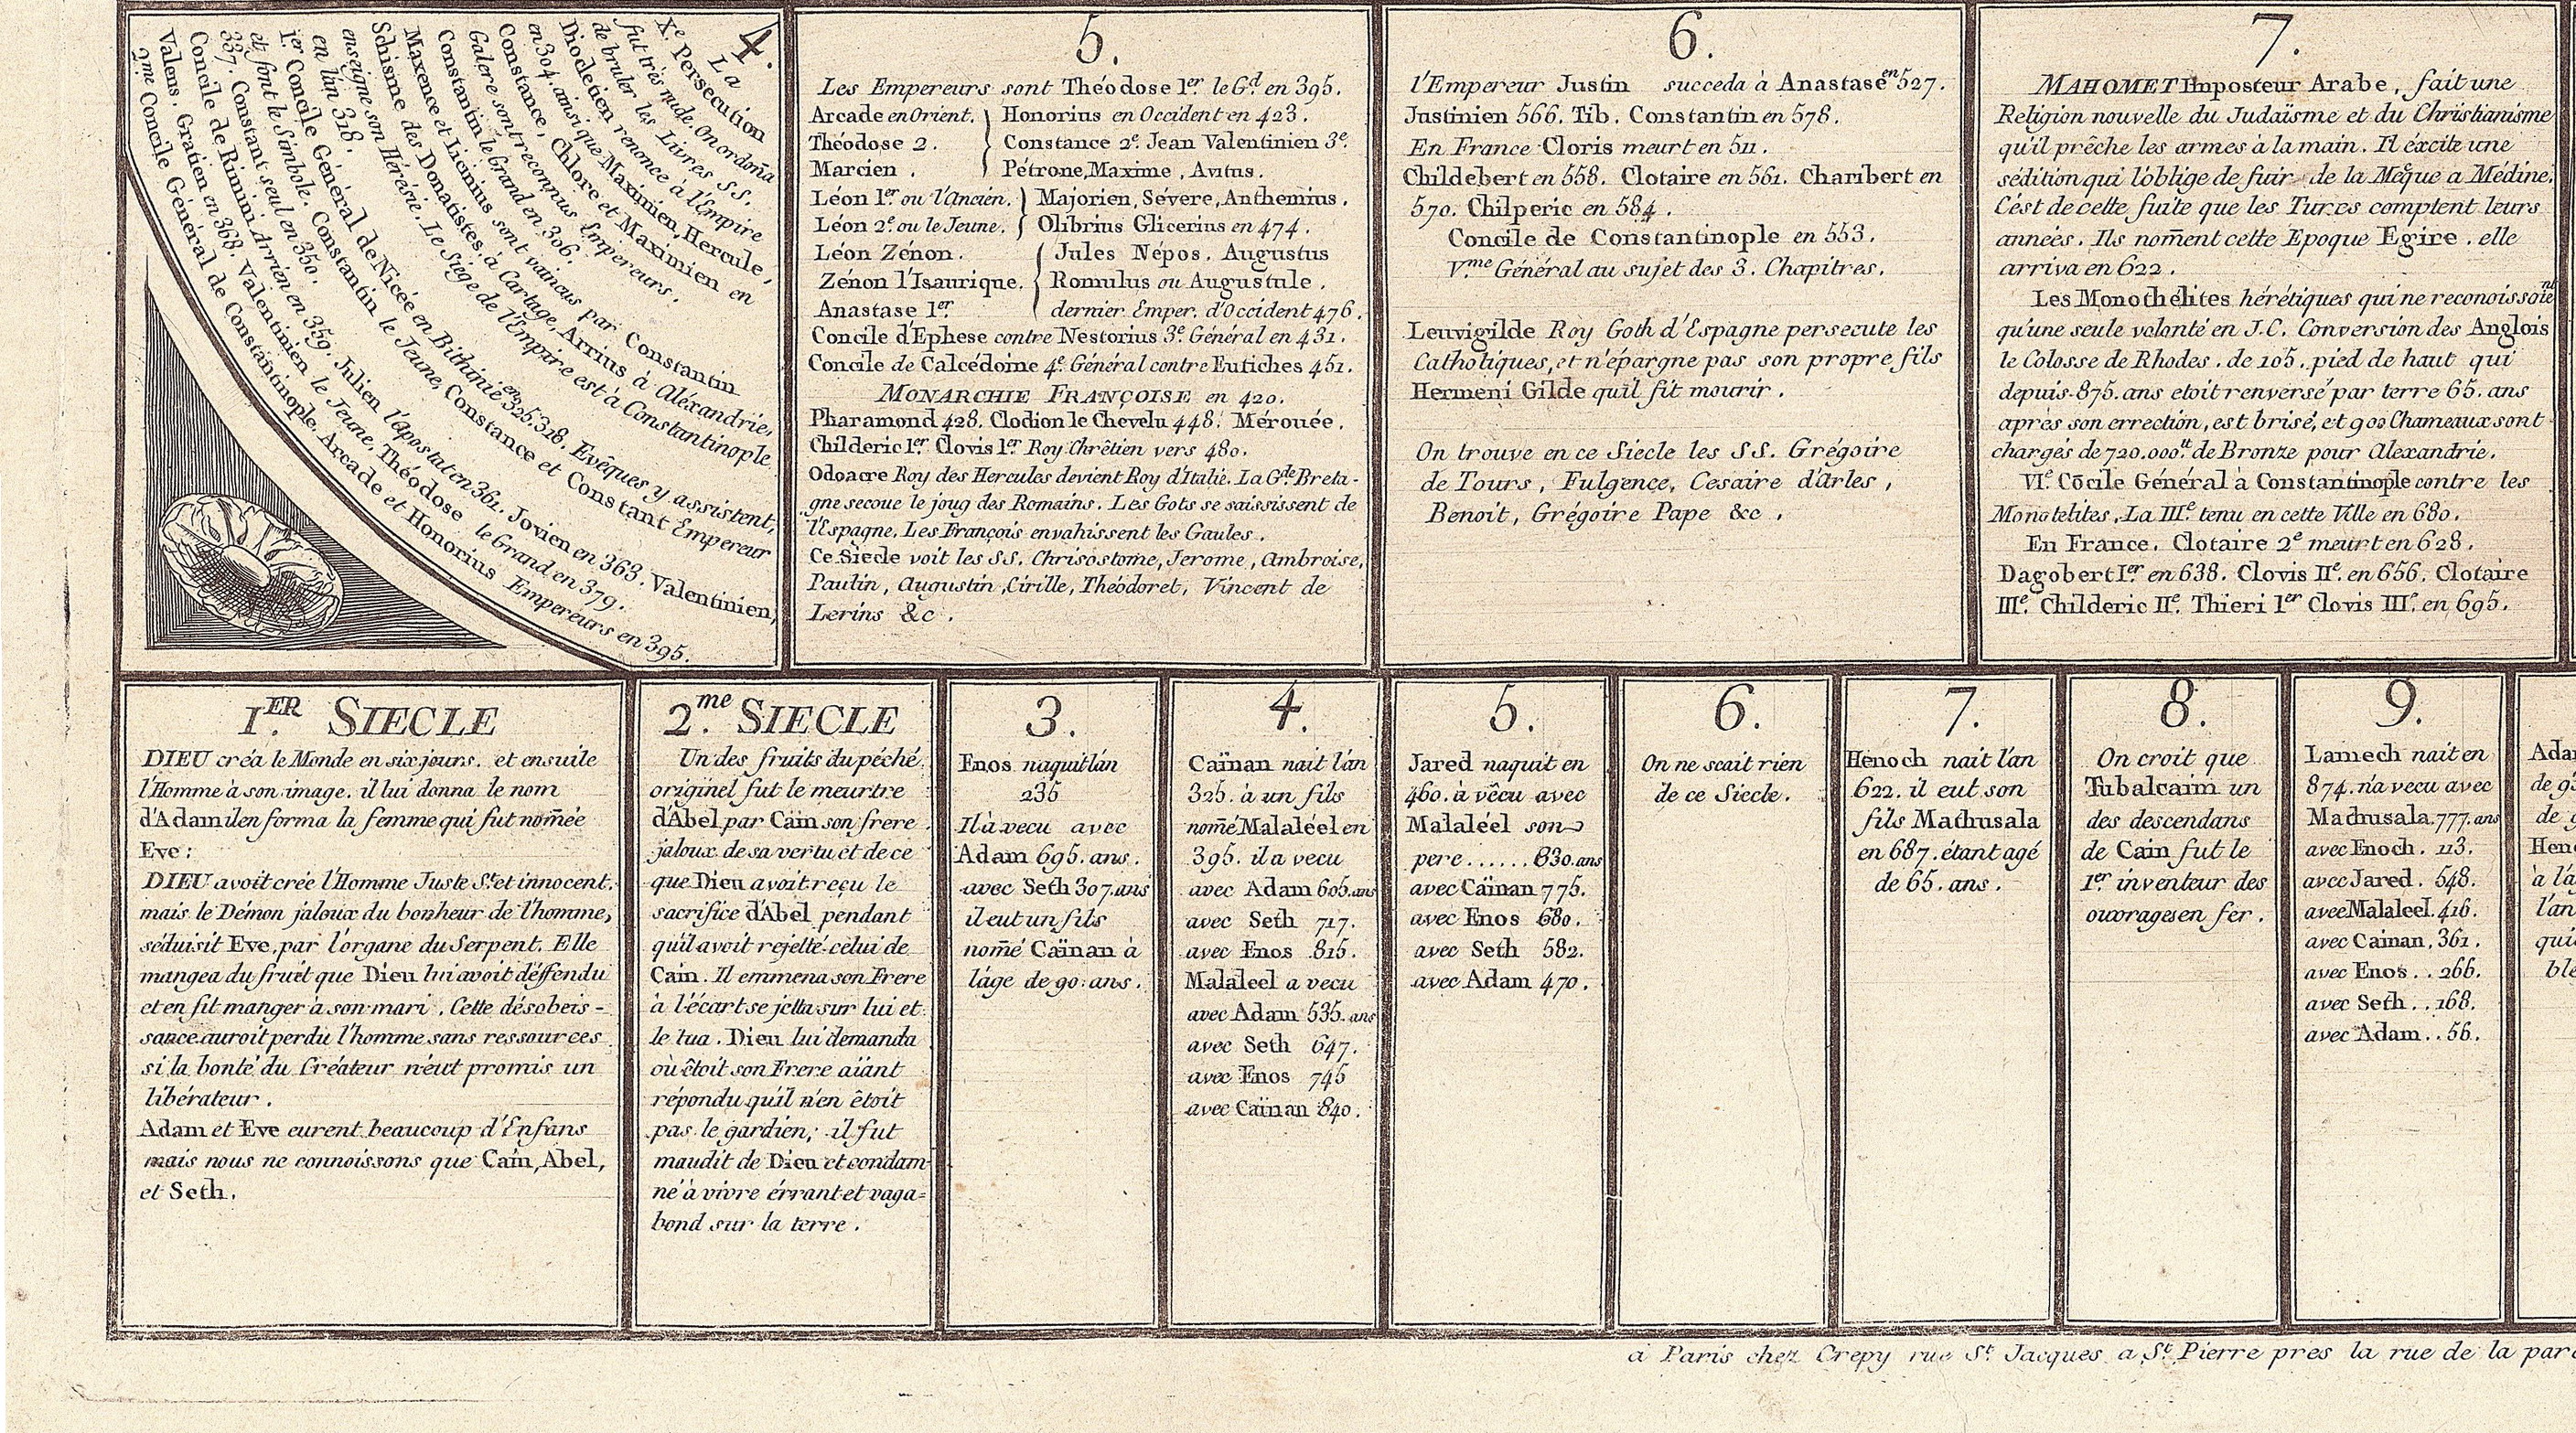 4.
La
X.e Persecution
fut très rude. On ordoña
de bruler les Livres SS.
Diocletien renonce à l'Empire
en 304. ainsi que Maximien, Hercule,
Constance, Chlore et Maximien en
Galere sont reconnus Empereurs.
Constantin le Grand en 306.
Maxence et Licinius sont vaincus par Constantin
Schisme des Donatistes, à Cartage, Arrius à Aléxandrie,
enseigne son Hérésie. Le Siège de l'Empire est à Constantinople
en l'an 318.
1.er Concile Général de Nicée en Bithinie en 325. 318. Evêques y assistent,
et font le Simbole. Constantin le Jeune, Constance et Constant Empereur
337. Constant seul en 350.
Concile de Rimini Arrien en 359. Julien l'apostat en 361. Jovien en 363. Valentinien,
Valens. Gratien en 368. Valentinien le Jeune, Théodose le Grand en 379.
2.me Concile Général de Constantinople. Arcade et Honorius Empereurs en 395.
5.
Les Empereurs sont Théodose 1.er le G.d en 395.
Arcade en Orient. } Honorius en Occident en 423.
Théodose 2. Constance 2.e Jean Valentinien 3.e
Marcien . Pétrone, Maxime , Avitus.
Léon 1.er ou l'Ancien. } Majorien, Sévere, Anthemius .
Léon 2.e ou le Jeune. Olibrius Glicerius en 474.
Léon Zénon. { Jules Népos. Augustus
Zénon l'Isaurique. Romulus ou Augustule .
Anastase 1.er dernier Emper. d'Occident 476.
Concile d'Ephese contre Nestorius 3.e Général en 431.
Concile de Calcédoine 4.e Général contre Eutiches 451.
MONARCHIE FRANÇOISE en 420.
Pharamond 428. Clodion le Chevelu 448. Mérouée.
Childeric 1.er Clovis 1.er Roy Chrêtien vers 480.
Odoacre Roy des Hercules devient Roy d'Italie. La G.de Breta-
gne secoue le joug des Romains. Les Gots se saisissent de
l'Espagne. Les François envahissent les Gaules.
Ce Siecle voit les SS. Chrisostome, Jerome, Ambroise,
Paulin, Augustin, Cirille, Théodoret, Vincent de
Lerins &c .
6.
l'Empereur Justin succeda à Anastase en 527.
Justinien 566. Tib. Constantin en 578.
En France Cloris meurt en 511.
Childebert en 558. Clotaire en 561. Charibert en
570. Chilperic en 584.
Concile de Constantinople en 553.
V.me Général au sujet des 3. Chapitres.
Leuvigilde Roy Goth d'Espagne persecute les
Catholiques, et n'épargne pas son propre fils
Hermeni Gilde qu'il fit mourir.
On trouve en ce Siecle les SS. Grégoire
de Tours, Fulgence, Cesaire d'Arles ,
Benoit, Grégoire Pape &c .
7.
MAHOMET Imposteur Arabe, fait une
Religion nouvelle du Judaïsme et du Christianisme
qu'il prêche les armes à la main. Il éxcite une
sédition qui l'oblige de fuir de la Méque a Médine.
C'est de cette fuite que les Turcs comptent leurs
années. Ils nom̃ent cette Epoque Egire . elle
arriva en 622.
Les Monothélites hérétiques qui ne reconoissoient
qu'une seule volonté en J.C. Conversion des Anglois
le Colosse de Rhodes . de 105. pied de haut qui
depuis 875. ans etoit renversé par terre 65. ans
après son errection, est brisé, et 900 Chameaux sont
chargés de 720.000.tt de Bronze pour Alexandrie.
VI.e Cõcile Général à Constantinople contre les
Monotelites, La III.e tenu en cette Ville en 680.
En France. Clotaire 2.e meurt en 628.
Dagobert I.er en 638. Clovis II.e en 656. Clotaire
III.e Childeric II.e Thieri 1.er Clovis III.e en 695.
1.ER SIECLE
DIEU créa le Monde en six jours. et ensuite
l'Homme à son image. il lui donna le nom
d'Adam il en forma la femme qui fut nom̃ée
Eve:
DIEU avoit crée l'Homme Juste S.t et innocent.
mais le Démon jaloux du bonheur de l'homme,
séduisit Eve, par l'organe du Serpent. Elle
mangea du fruit que Dieu lui avoit déffendu
et en fit manger à son mari . Cette désobeis-
sance auroit perdu l'homme sans ressources
si la bonté du Créateur n'eut promis un
libérateur.
Adam et Eve eurent beaucoup d'Enfans
mais nous ne connoissons que Caïn, Abel,
et Seth.
2.me SIECLE
Un des fruits du péché
originel fut le meurtre
d'Abel par Cain son frere
jaloux de sa vertu et de ce
que Dieu avoit reçu le
sacrifice d'Abel pendant
qu'il avoit rejetté celui de
Cain. Il emmena son Frere
à l'écart se jetta sur lui et
le tua. Dieu lui demanda
où êtoit son Frere aïant
répondu qu'il n'en êtoit
pas le gardien; il fut
maudit de Dieu et condam-
né à vivre érrant et vaga=
bond sur la terre.
3.
Enos naquit l'an
235
Il à vecu avec
Adam 695. ans.
avec Seth 307. ans
il eut un fils
nom̃é Caïnan à
l'âge de 90. ans.
4.
Caïnan nait l'an
325. à un fils
nom̃é Malaléel en
395. il a vecu
avec Adam 605. ans
avec Seth 717.
avec Enos 815.
Malaleel a vecu
avec Adam 535. ans
avec Seth 647.
avec Enos 745
avec Caïnan 840.
5.
Jared naquit en
460. à vêcu avec
Malaléel son
pere...... 830. ans
avec Caïnan 775.
avec Enos 680.
avec Seth 582.
avec Adam 470.
6.
On ne scait rien
de ce Siecle.
7.
Henoch nait l'an
622. il eut son
fils Mathusala
en 687. étant agé
de 65. ans.
8.
On croit que
Tubalcaim un
des descendans
de Cain fut le
1.er inventeur des
ouvrages en fer.
9.
Lamech nait en
874. n'a vecu avec
Mathusala. 777. ans
avec Enoch. 113.
avec Jared. 548.
avec Malaleel. 416.
avec Cainan. 361.
avec Enos.. 266.
avec Seth.. 168.
avec Adam.. 56.
Ada
de 9
de
Hen
à l'â
l'an
qui
ble
à Paris chez Crepy rue S.t Jacques a S.t Pierre pres la rue de la par